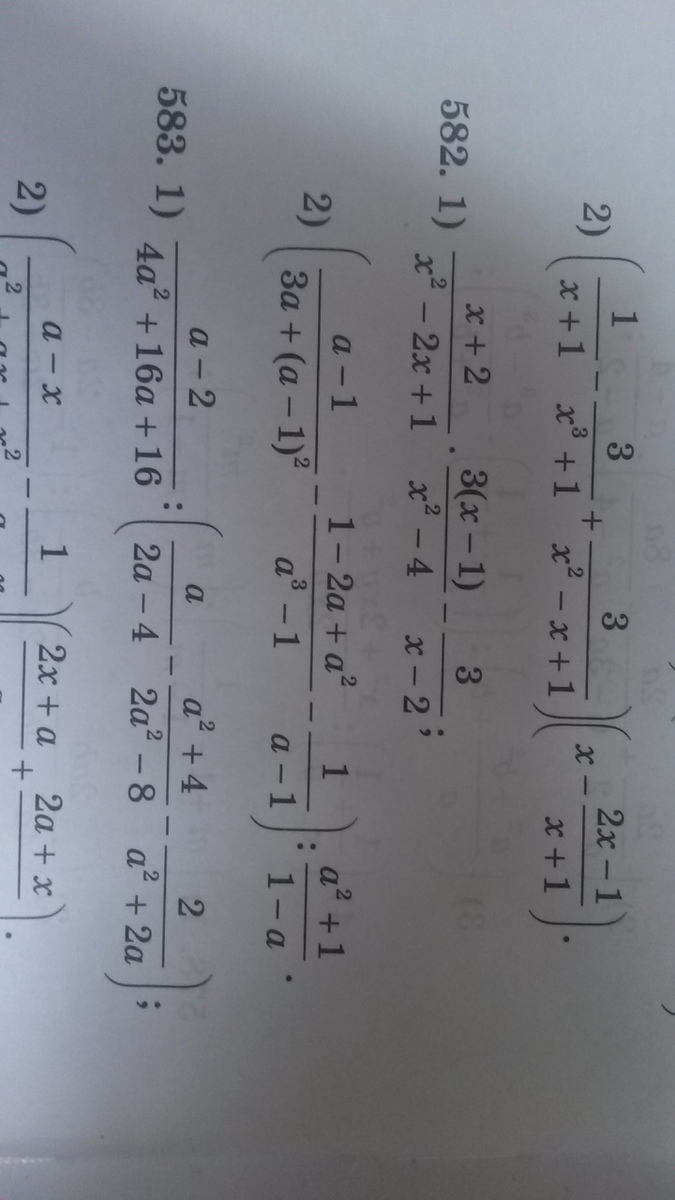 2) (1/(x + 1) − 3/(x³ + 1) + 3/(x² − x + 1))(x − (2x − 1)/(x + 1)).
582. 1) (x + 2)/(x² − 2x + 1) · (3(x − 1))/(x² − 4) − 3/(x − 2);
2) ((a − 1)/(3a + (a − 1)²) − (1 − 2a + a²)/(a³ − 1) − 1/(a − 1)) : (a² + 1)/(1 − a).
583. 1) (a − 2)/(4a² + 16a + 16) : (a/(2a − 4) − (a² + 4)/(2a² − 8) − 2/(a² + 2a));
2) ((a − x)/(a² + ax + x²) − 1/
)((2x + a)/
+ (2a + x)/
).